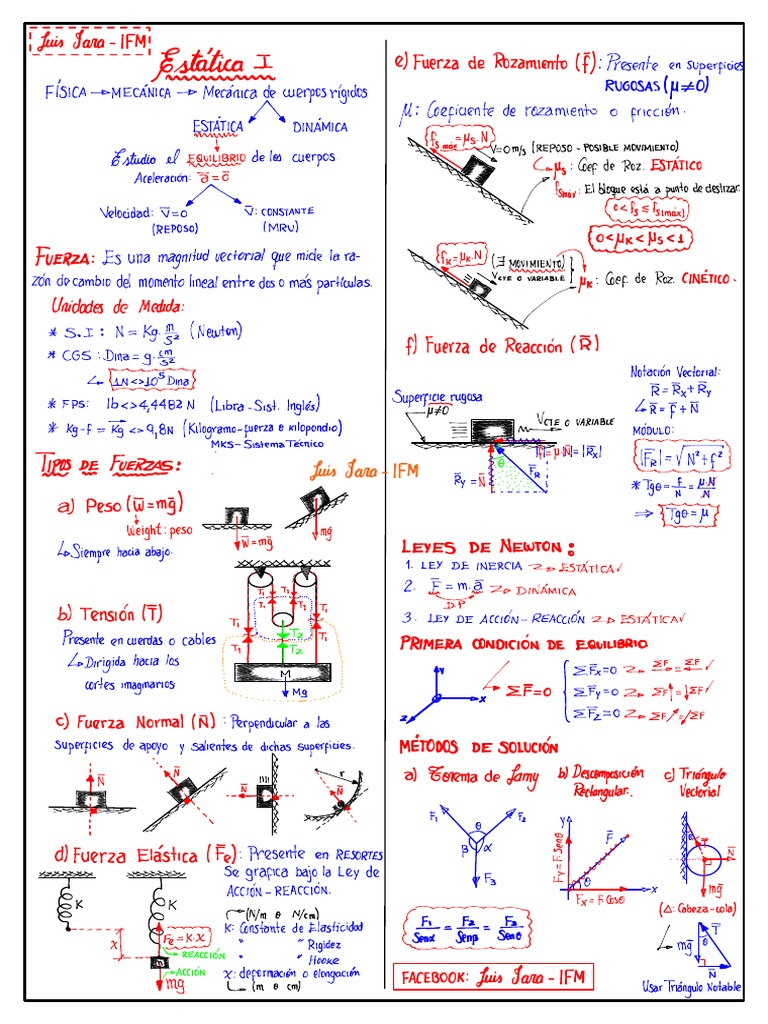 Luis Jara - IFM
Estática I
FÍSICA → MECÁNICA → Mecánica de cuerpos rígidos
ESTÁTICA DINÁMICA
Estudio el EQUILIBRIO de los cuerpos.
Aceleración: a̅ = 0̅
Velocidad: V̅=0 V̅: CONSTANTE
(REPOSO) (MRU)
FUERZA: Es una magnitud vectorial que mide la ra-
zón de cambio del momento lineal entre dos o más partículas.
Unidades de Medida:
* S.I: N = Kg. m/s² (Newton)
* CGS: Dina = g. cm/s²
↳ 1N <> 10⁵ Dina
* FPS: lb <> 4,4482 N (Libra - Sist. Inglés)
* Kg-f = Kg <> 9,8N (Kilogramo-fuerza o kilopondio)
MKS - Sistema Técnico
TIPOS DE FUERZAS:
Luis Jara - IFM
a) Peso (w̅=mg̅)
Weight: peso
↳ Siempre hacia abajo.
w̅=mg̅
mg̅
b) Tensión (T̅)
Presente en cuerdas o cables
↳ Dirigida hacia los
cortes imaginarios
T₁ T₁ T₁ T₁
T₁ T₂ T₁
T₂
M
Mg
c) Fuerza Normal (N̅): Perpendicular a las
superficies de apoyo y salientes de dichas superficies.
N̅ N̅ N̅ m N̅ r
d) Fuerza Elástica (F̅e): Presente en RESORTES
Se grafica bajo la Ley de
ACCIÓN - REACCIÓN.
(N/m o N/cm)
K: Constante de Elasticidad
" " Rigidez
" " Hooke
x: deformación o elongación
(m o cm)
K K
x
Fe = K.x
REACCIÓN
m
ACCIÓN
mg
e) Fuerza de Rozamiento (f̅): Presente en superficies
RUGOSAS (μ≠0)
μ: Coeficiente de rozamiento o fricción.
fs máx = μs.N
V=0 m/s (REPOSO - POSIBLE MOVIMIENTO)
μs: Coef. de Roz. ESTÁTICO
fsmáx: El bloque está a punto de deslizar.
0 < fs ≤ fs(máx)
0 < μK < μS < 1
fK = μK.N
(∃ MOVIMIENTO)
VCTE O VARIABLE
μK: Coef. de Roz. CINÉTICO
f) Fuerza de Reacción (R̅)
Superficie rugosa
μ≠0
VCTE O VARIABLE
f = μ.N = |R̅x|
R̅y = N̅
θ
F̅R
Notación Vectorial:
R̅ = R̅x + R̅y
↳ R̅ = f̅ + N̅
MÓDULO:
|F̅R| = √N² + f²
* Tgθ = f/N = μ.N/N
⇒ Tgθ = μ
LEYES DE NEWTON:
1. LEY DE INERCIA ESTÁTICA ✓
2. F̅ = m.a̅ DINÁMICA
D.P
3. LEY DE ACCIÓN - REACCIÓN ESTÁTICA ✓
PRIMERA CONDICIÓN DE EQUILIBRIO
Y
X
Z
ΣF̅=0
ΣF̅x=0 ΣF→ = ΣF← ✓
ΣF̅y=0 ΣF↑ = ↓ΣF ✓
ΣF̅z=0 ΣF↗ = ↙ΣF
MÉTODOS DE SOLUCIÓN
a) Teorema de Lamy
b) Descomposición
Rectangular.
c) Triángulo
Vectorial
F₁ F₂
θ
β α
F₃
F₁/Senα = F₂/Senβ = F₃/Senθ
y
F̅
Fy = F Senθ
θ
x
Fx = F Cosθ
θ
T̅
N̅
mg̅
(Δ: Cabeza - cola)
mg̅
θ
T̅
N̅
Usar Triángulo Notable
FACEBOOK: Luis Jara - IFM